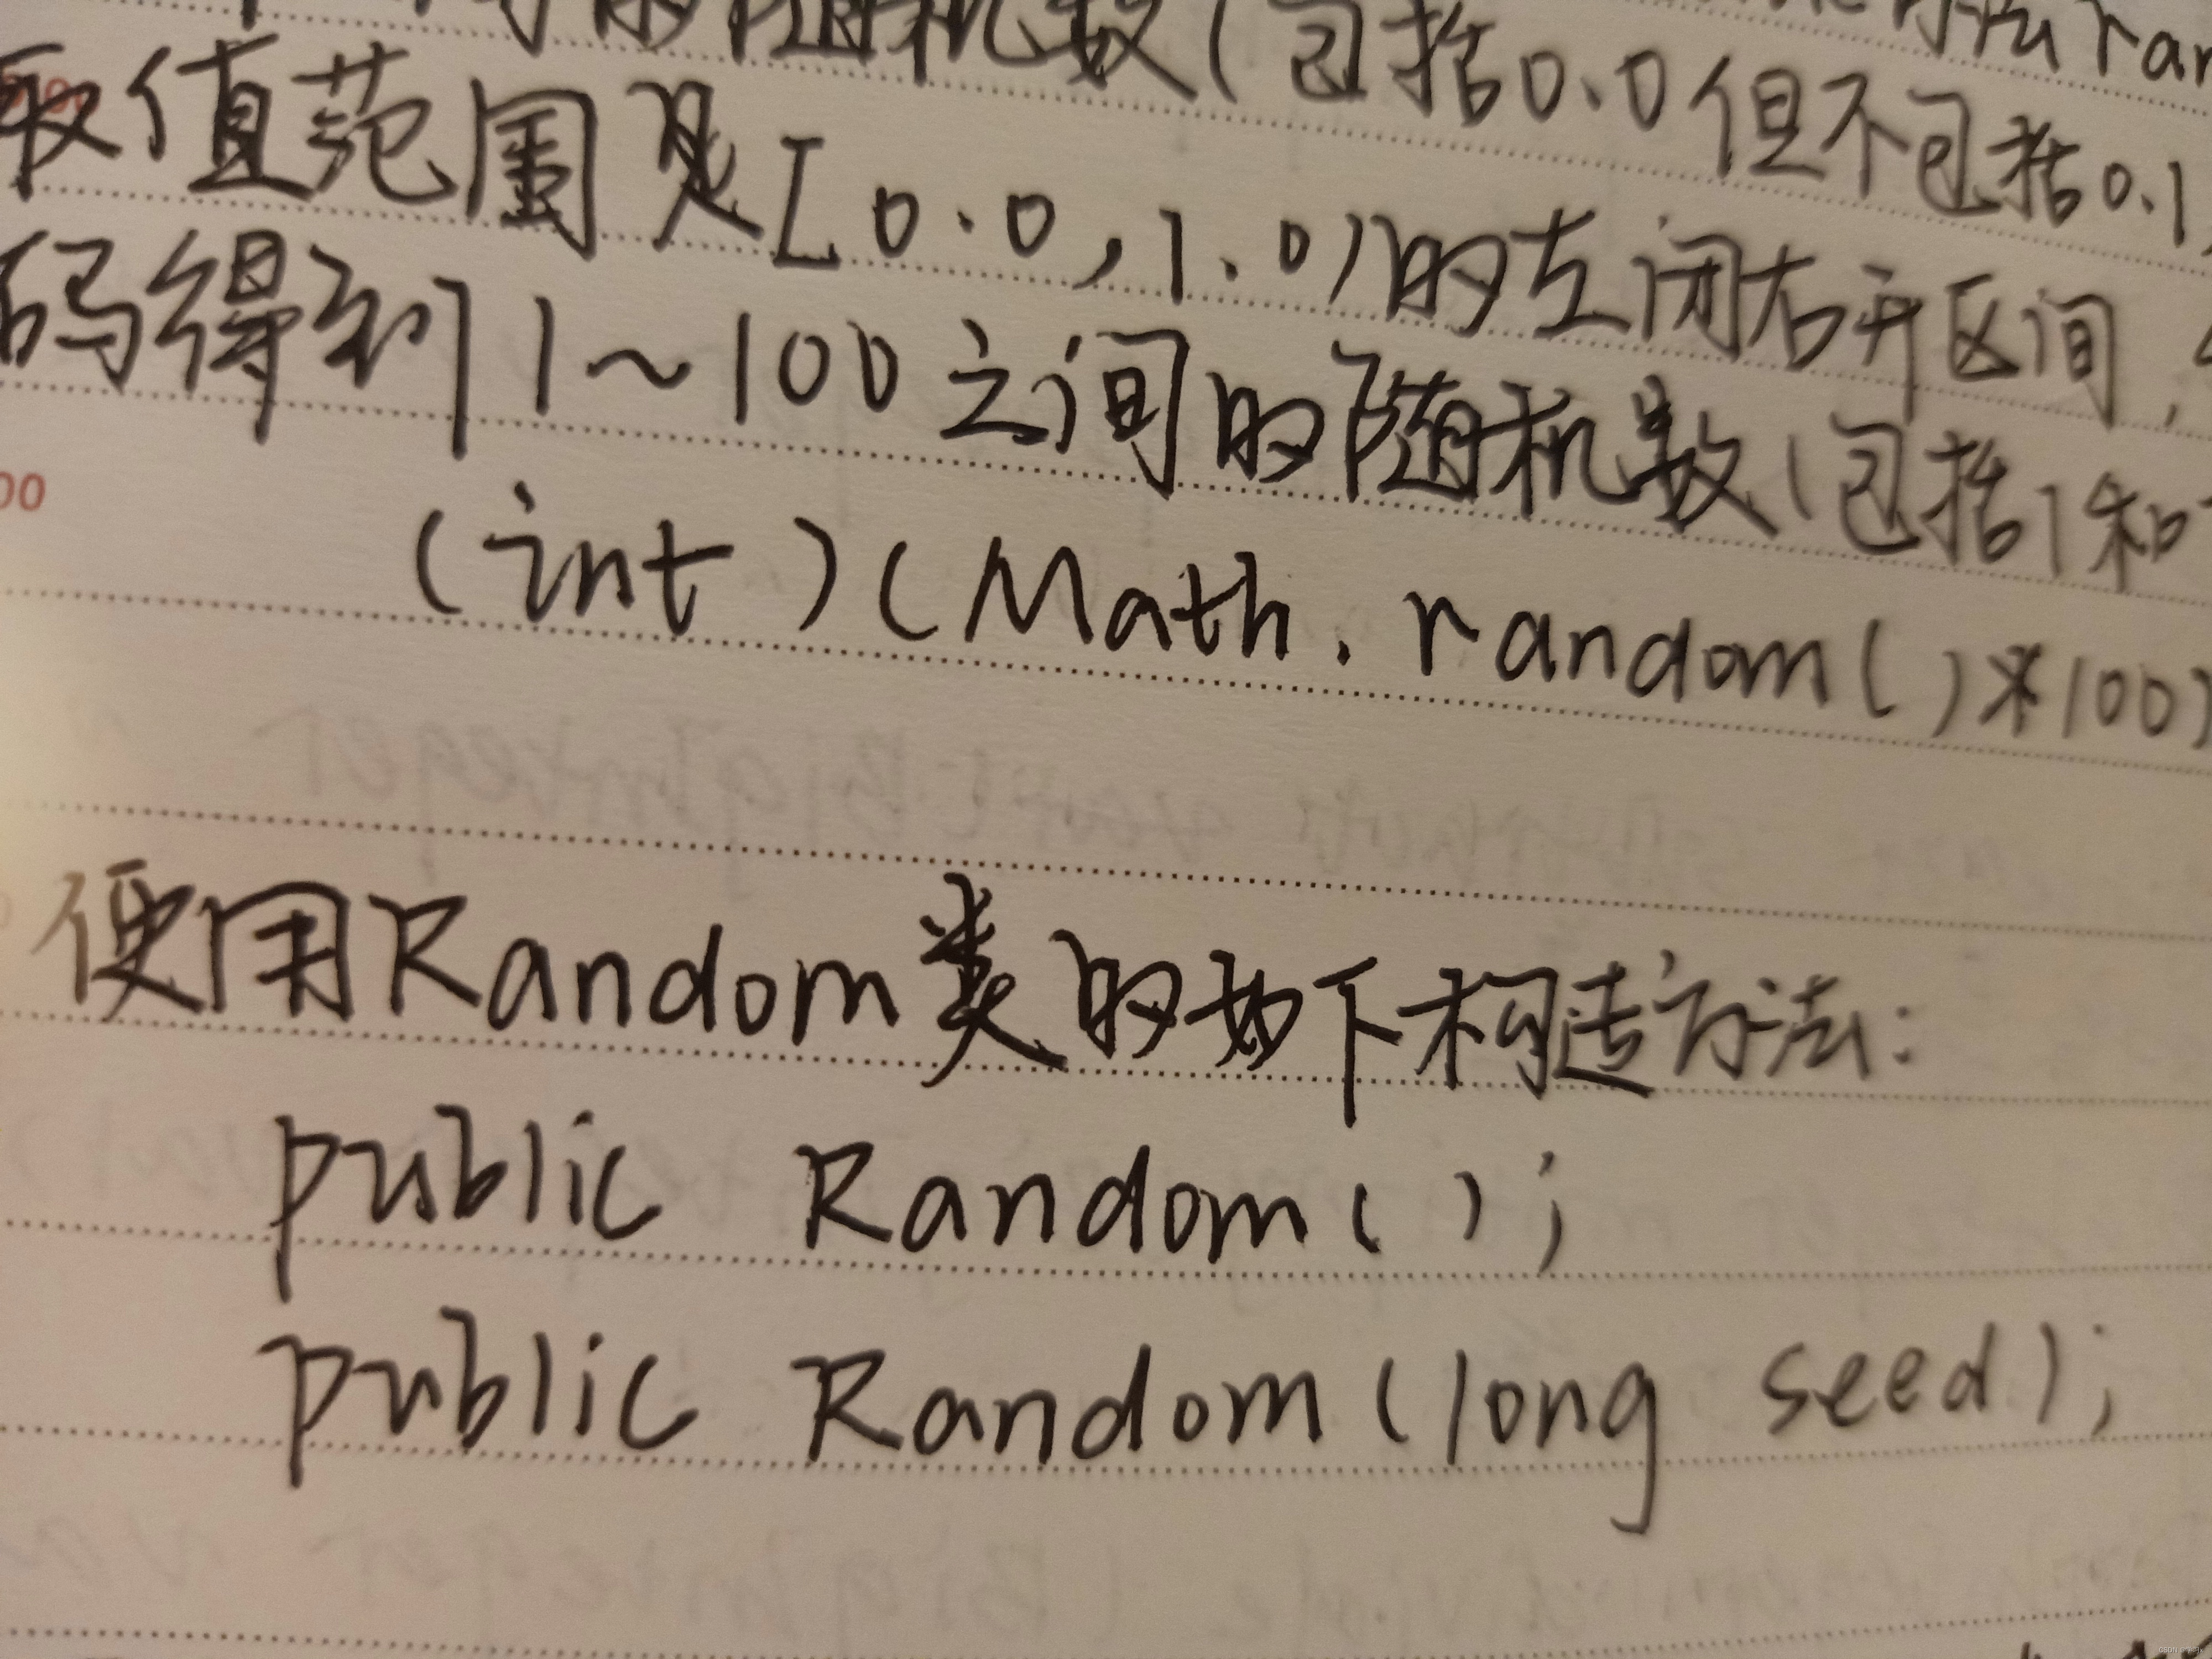 方法ran
的随机数(包括0.0但不包括0.1
取值范围是[0.0,1.0)的左闭右开区间,
码得到1~100之间的随机数(包括1和
(int)(Math.random()*100)
使用Random类的如下构造方法:
public Random();
public Random(long seed);